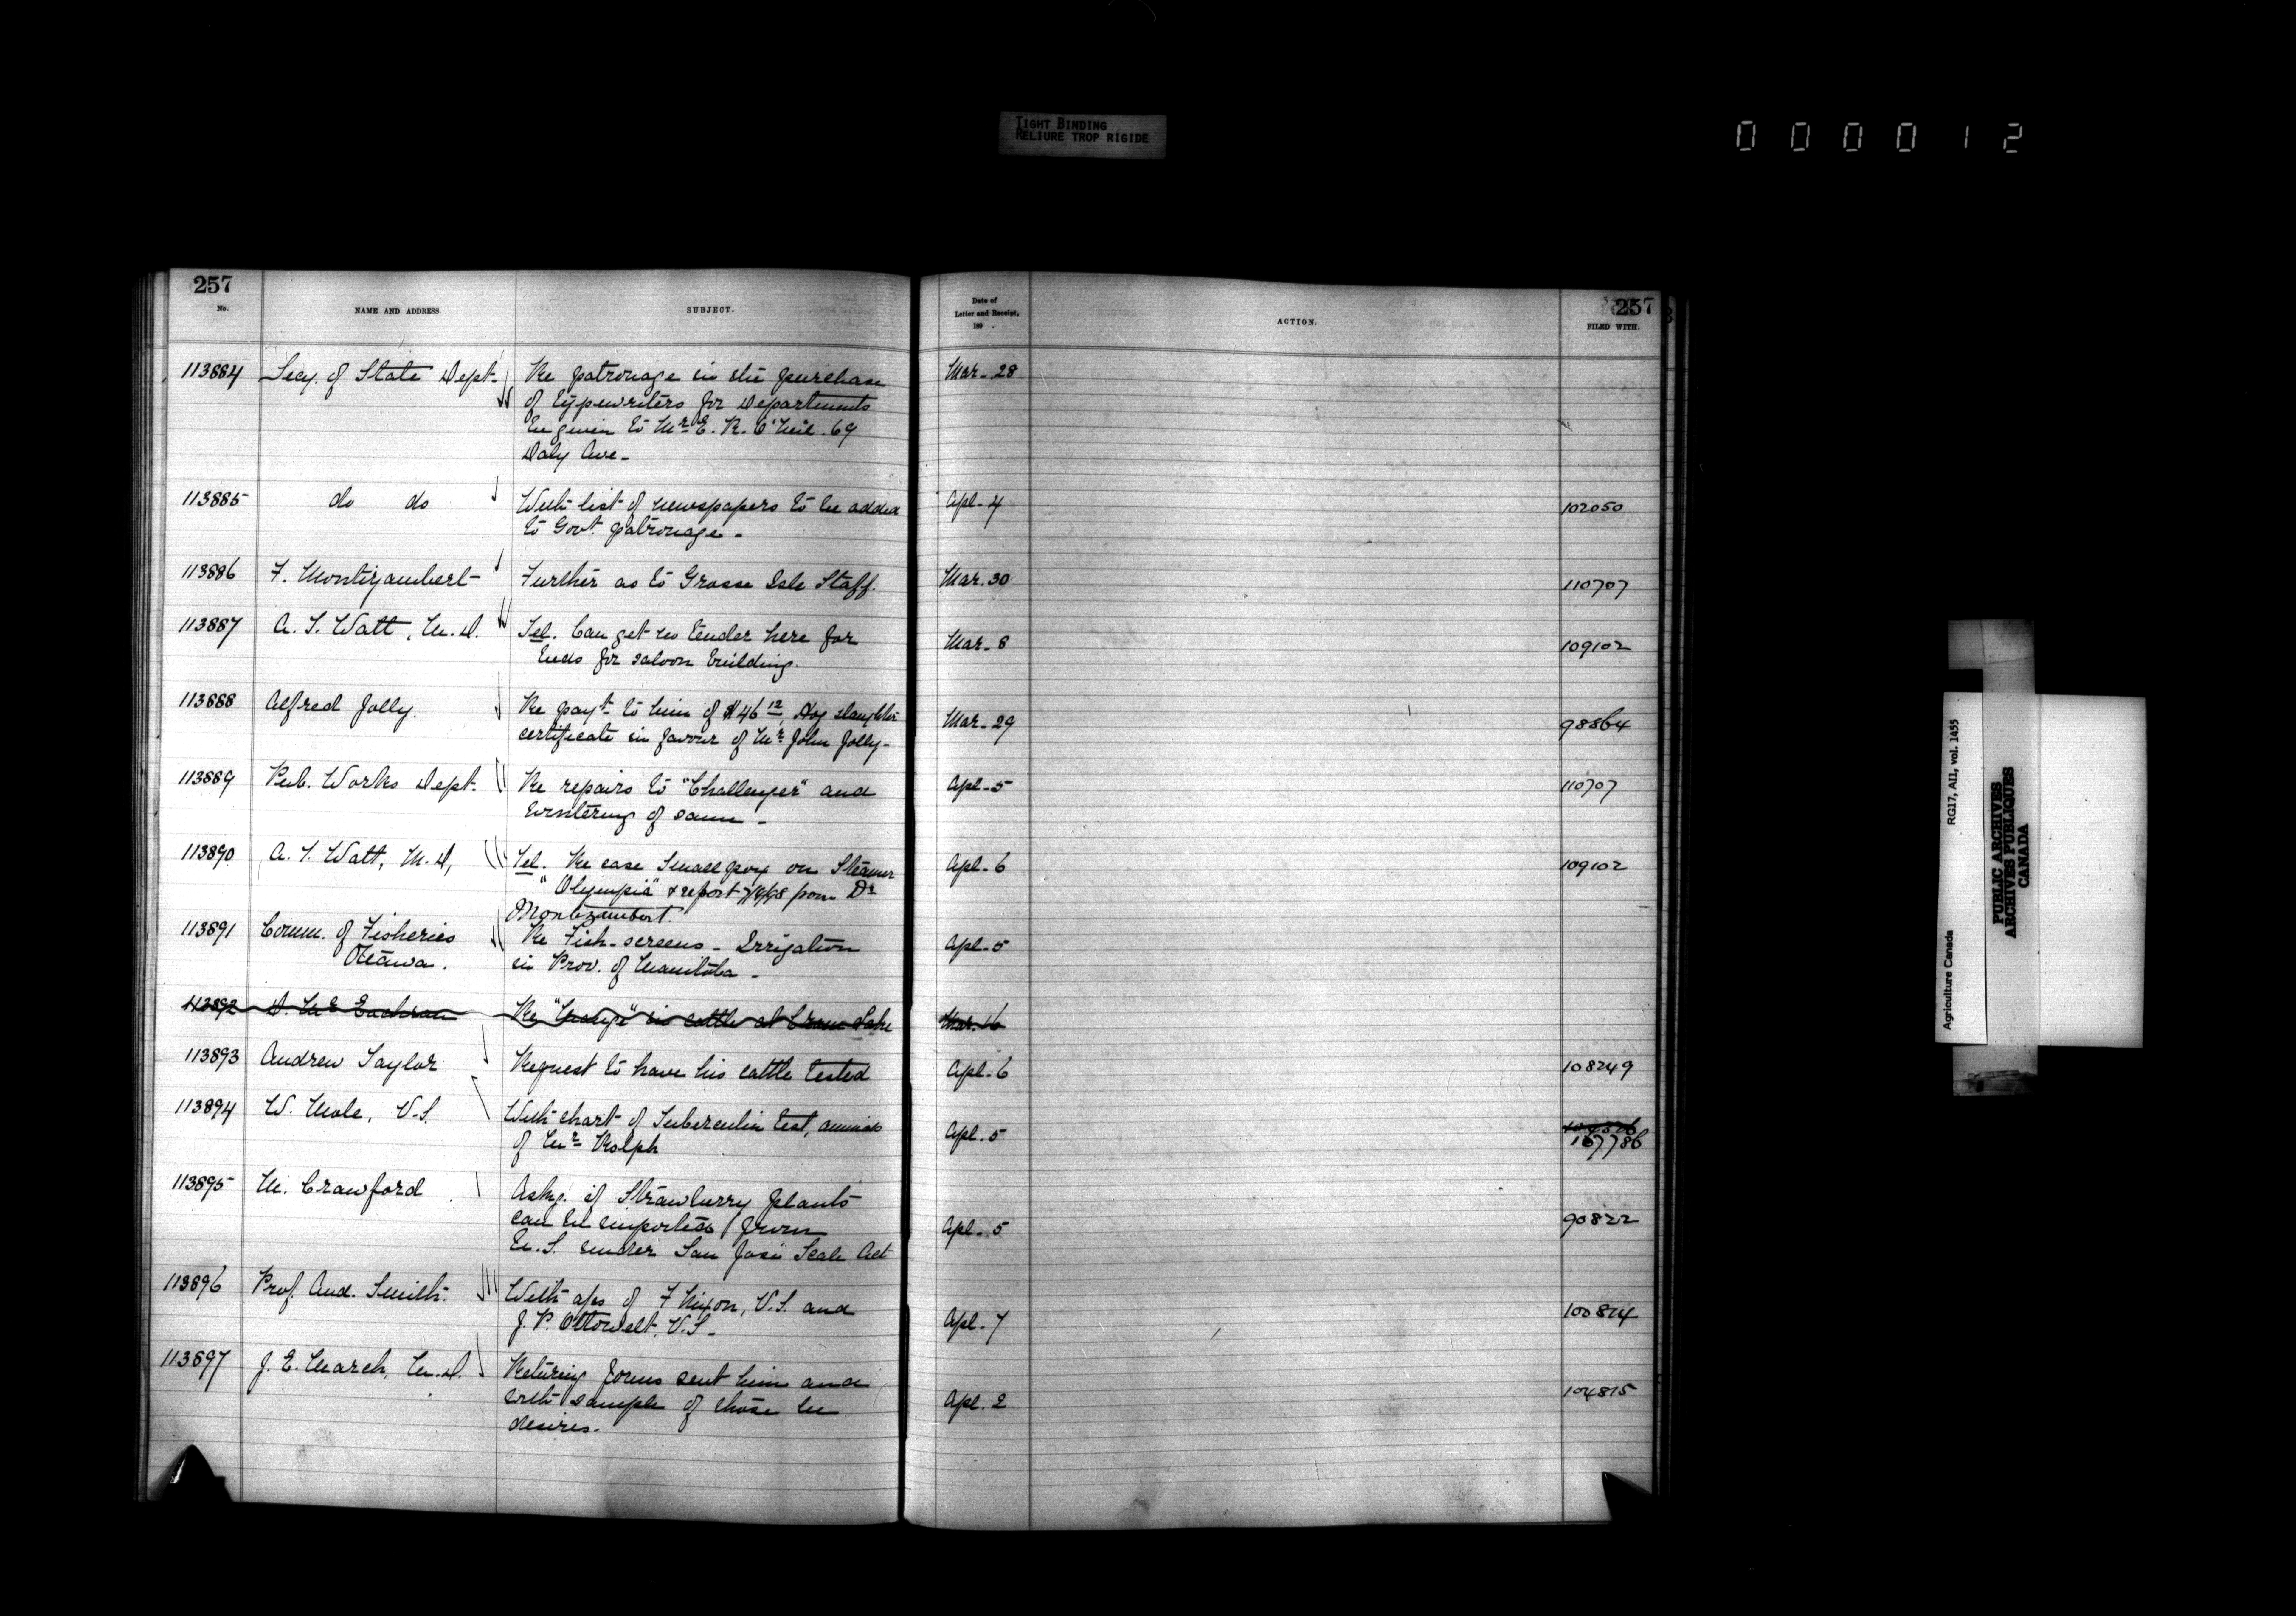 TIGHT BINDING
RELIURE TROP RIGIDE
000012
257
No.
NAME AND ADDRESS.
SUBJECT.
Date of
Letter and Receipt,
189 .
ACTION.
257
FILED WITH.
113884 Secy. of State Dept. Re patronage in the purchase Mar. 28
of typewriters for Departments
be given to Mr. E. R. O'Neil. 69
Daly Ave.
113885 do do With list of newspapers to be added Apl. 4 102050
to Govt. patronage.
113886 F. Montizambert Further as to Grosse Isle Staff. Mar. 30 110707
113887 A. T. Watt, M.D. Tel. Can get no tender here for Mar. 8 109102
beds for saloon building.
113888 Alfred Jolly. Re payt. to him of $46 12, Hog slaughter Mar. 29 98864
certificate in favour of Mr. John Jolly.
113889 Pub. Works Dept. Re repairs to "Challenger" and Apl. 5 110707
wintering of same.
113890 A. T. Watt, M.D, Tel. Re case Smallpox on Steamer Apl. 6 109102
"Olympia" & report from Dr
Montizambert.
113891 Comm. of Fisheries Re Fish-screens - Irrigation Apl. 5
Ottawa. in Prov. of Manitoba -
113892 D. McEachran Re "Mange" in cattle at Crane Lake Mar. 16
113893 Andrew Taylor Request to have his cattle tested Apl. 6 108249
113894 W. Mole, V.S. With chart of Tuberculin test, animals Apl. 5
of Mr. Rolph 107786
113895 M. Crawford Askg. if Strawberry plants
can be imported from Apl. 5 90822
U.S. under San José Scale Act
113896 Prof. And. Smith. With aps of F Nixon, V.S. and Apl. 7 100814
J. P. V.S.
113897 J. E. March, M.D. Returng forms sent him and
with sample of those he Apl. 2 104815
desires.
Agriculture Canada RG17, AII, vol. 1455
PUBLIC ARCHIVES
ARCHIVES PUBLIQUES
CANADA